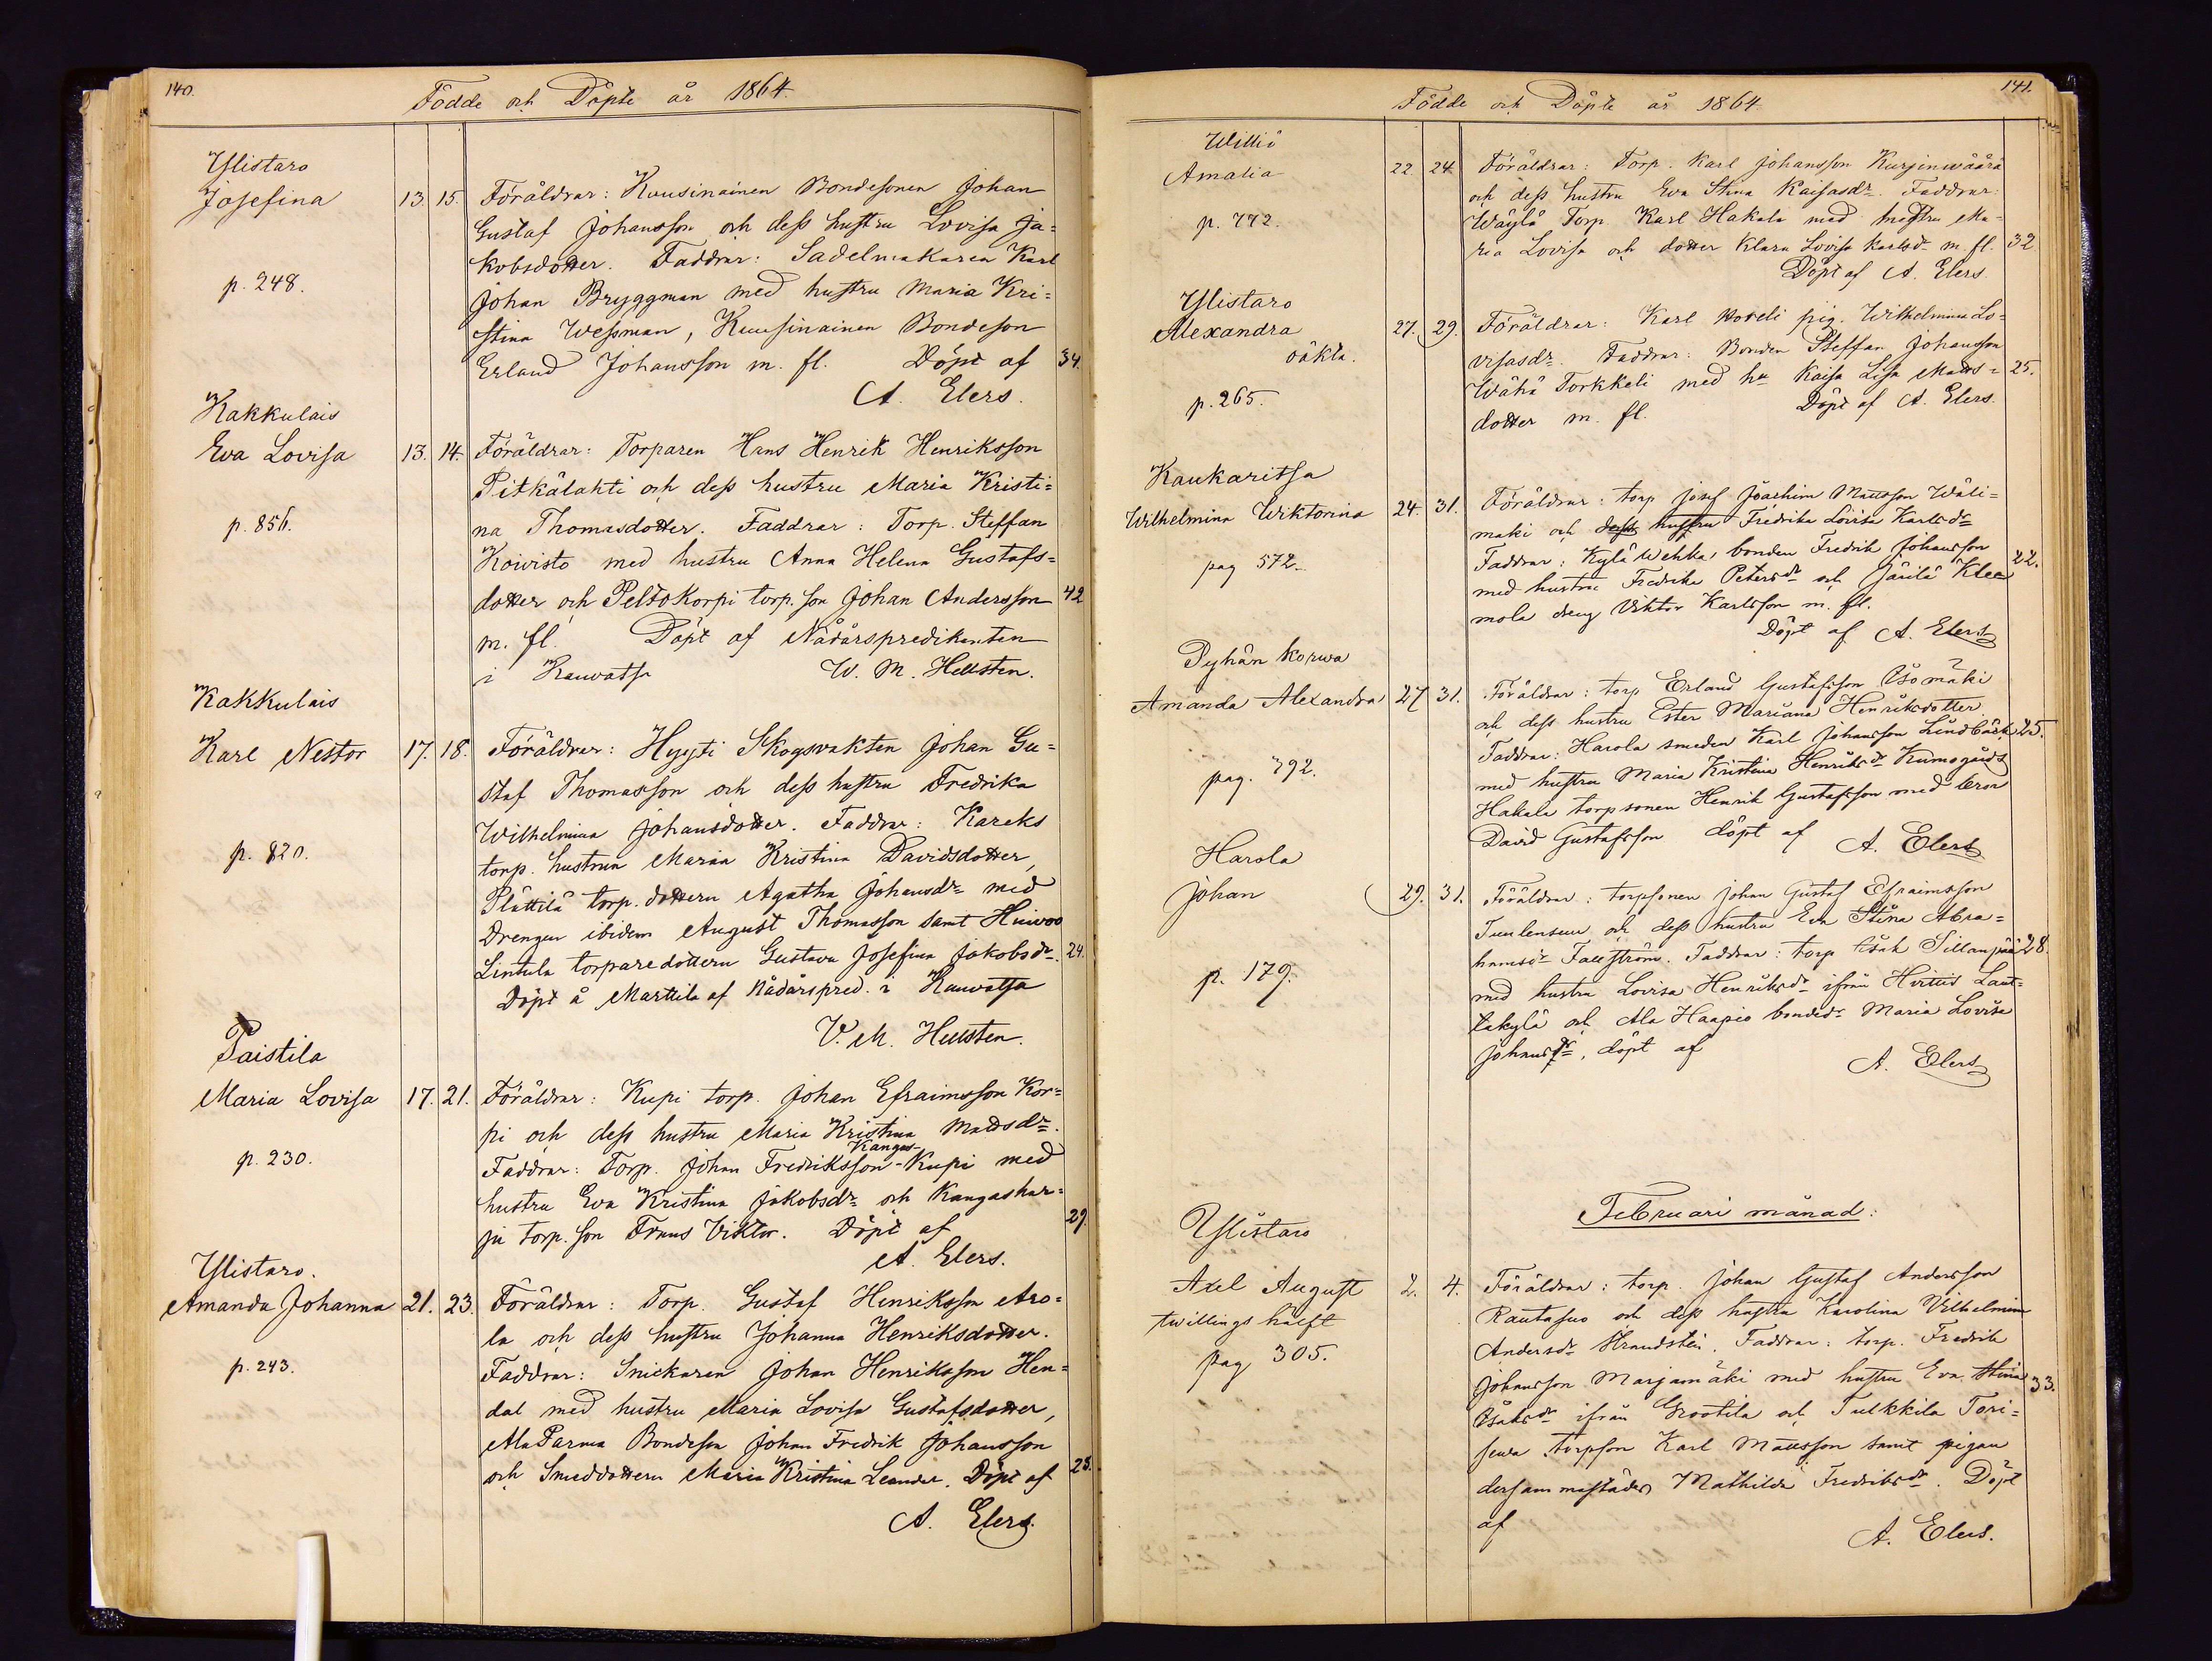 140.
Födde och Döpte år 1864.
Ylistaro
Josefina 13. 15. Föräldrar: Kuusinainen Bondesonen Johan
Gustaf Johansson och dess hustru Lovisa Ja=
kobsdotter. Faddrar: Sadelmakaren Karl
p. 248.
Johan Bryggman med hustru Maria Kri=
stina Wessman, Kuusinainen Bondeson
Erland Johansson m. fl. Döpt af 34.
A. Elers.
Kakkulais
Eva Lovisa 13. 14. Föräldrar: Torparen Hans Henrik Henriksson
Pitkälahti och dess hustru Maria Kristi=
p. 856.
na Thomasdotter. Faddrar: Torp. Steffan
Koivisto med hustru Anna Helena Gustafs=
dotter och Peltokorpi torp. son Johan Andersson 42
m. fl. Döpt af Nådårspredikanten
i Kauvatsa W. M. Hellsten.
Kakkulais
Karl Nestor 17. 18. Föräldrar: Hyyti Skogsvakten Johan Gu=
staf Thomasson och dess hustru Fredrika
Wilhelmina Johansdotter. Faddrar: Kareks
p. 820.
torp. hustrun Maria Kristina Davidsdotter,
Plättilä torp. dottern Agatha Johansdr med
Drengen ibidem August Thomasson samt Huivoo
Lintula torparedottern Gustava Josefina Jakobsdr. 24.
Döpt å Marttila af Nådårspred. i Kauvatsa
V. M. Hellsten.
Paistila
Maria Lovisa 17. 21. Föräldrar: Kupi torp. Johan Efraimsson Kor=
pi och dess hustru Maria Kristina Matsdr.
Kangas-
p. 230.
Faddrar: Torp. Johan Fredriksson-Kupi med
hustru Eva Kristina Jakobsdr och Kangashar=
ju torp. son Frans Viktor. Döpt af 29.
A. Elers.
Ylistaro.
Amanda Johanna 21. 23. Föräldrar: Torp. Gustaf Henriksson Aro=
la och dess hustru Johanna Henriksdotter.
p. 243.
Faddrar: Snickaren Johan Henriksson Hen=
dal med hustru Maria Lovisa Gustafsdotter,
Ala Parma Bondeson Johan Fredrik Johansson
och Smeddottern Maria Kristina Leander. Döpt af 25.
A. Elers.
141.
Födde och Döpte år 1864
Williö
Amalia 22. 24. Föräldrar: Torp. Karl Johansson Kurjenwäärä
och dess hustru Eva Stina Kaisasdr. Faddrar:
p. 772.
Wäylä Torp Karl Hakala med hustru Ma=
ria Lovisa och dotter Klara Lovisa Karlsdr m. fl. 32
Döpt af A. Elers.
Ylistaro
Alexandra 27. 29. Föräldrar: Karl pig. Wilhelmina Lo=
oäkta.
visasdr. Faddrar: Bonden Steffan Johansson
Wähä Torkkeli med hu Kaisa Lisa Mats= 25.
p. 265.
dotter m. fl. Döpt af A. Elers.
Kaukaritsa
Wilhelmina Wiktorina 24. 31. Föräldrar: torp Josef Joachim Mattsson Wäli=
maki och dess hustru Fredrika Lovisa Karlsdr
pag 572.
Faddrar: Kylä Wehka, bonden Fredrik Johansson 22.
med hustru Fredrika Petersdr och Järilä Klee
mola dreng Viktor Karlsson m. fl.
Döpt af A. Elers
Pyhän korwa
Amanda Alexandra 27 31. Föräldrar: torp Erland Gustafsson Isomäki
och dess hustru Ester Mariana Henriksdotter
Faddrar: Harola smeden Karl Johansson Lindbäck 25.
pag. 792.
med hustru Maria Kristina Henriksdr Kumogårds
Hakala torpsonen Henrik Gustafsson med bror
David Gustafsson döpt af A. Elers
Harola
Johan 29. 31. Föräldrar: torpsonen Johan Gustaf Efraimsson
Tuulensuu och dess hustru Eva Stina Abra=
hamsdr Fallström. Faddrar: torp Isak Sillanpää 28.
p. 179.
med hustru Lovisa Henriksdr ifrån Hvittis Laut=
takylä och Ala Haapio bondedr Maria Lovisa
Johansdr, döpt af
A. Elers
Februari månad:
Ylistaro
Axel August 2. 4. Föräldrar: torp. Johan Gustaf Andersson
twillings hälft
Rautasuo och dess hustru Karolina Vilhelmina
pag 305.
Andersdr Strandsten. Faddrar: torp. Fredrik
Johansson Marjamäki med hustru Eva Stina 33.
Isaksdr ifrån Grootila och Tulkkila Tori=
seva torpson Karl Mattsson samt pigan
dersammastädes Mathilda Fredriksdr. Döpt
af A. Elers.